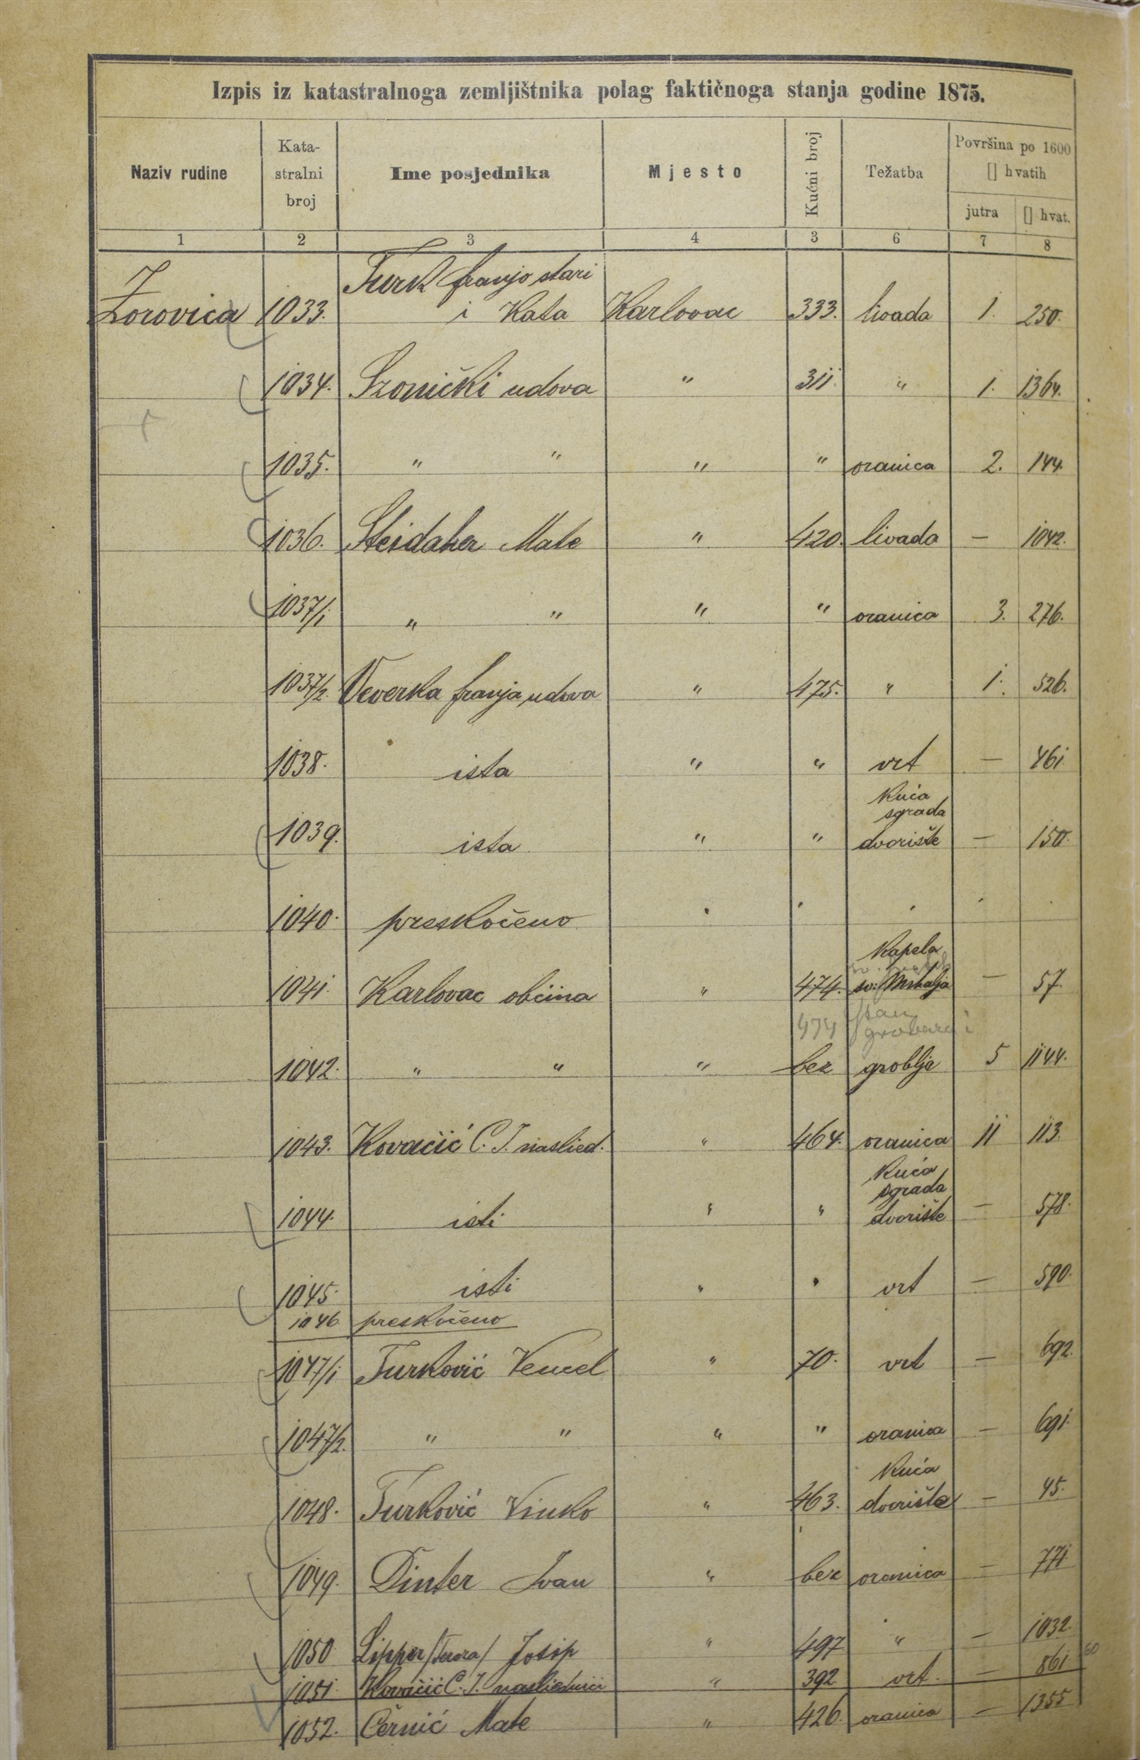 Izpis iz katastralnoga zemljištnika polag faktičnoga stanja godine 1875.
Naziv rudine Kata-stralni broj Ime posjednika Mjesto Kućni broj Težatba Površina po 1600 [] hvatih
jutra [] hvat.
1 2 3 4 3 6 7 8
Turk franjo stari
Zorovica 1033. i Kata Karlovac 333. livada 1. 250.
1034. udova " 311. " 1. 1364.
1035. " " " " oranica 2. 144.
1036. Steidaher Mate " 420. livada — 1042.
1037/1 " " " " oranica 3. 276.
1037/2 Veverka franja udova " 475. " 1. 526.
1038. ista " " vrt — 461
kuća
sgrada
1039. ista " " dvorište — 150.
1040. preskočeno
kapela
1041. Karlovac občina " 474. sv. Mihalja — 57.
474 stan
grobara
1042. " " " bez groblje 5 1144.
1043. Kovačić C. J. naslied. " 464. oranica 11 113.
kuća
sgrada
1044. isti " " dvorište — 578.
1045. isti " " vrt — 590.
1046 preskočeno
1047/1 Turković Vencel " 70. vrt — 692.
1047/2 " " " " oranica — 691.
kuća
1048. Turković Vinko " 463. dvorište — 45.
1049. Dinter Ivan " bez oranica — 771
1050 Josip " 497 " — 1032.
1051. Kovačić C. J. nasliednici " 392 vrt. — 861 60
1052. Černić Mate " 426. oranica — 1355